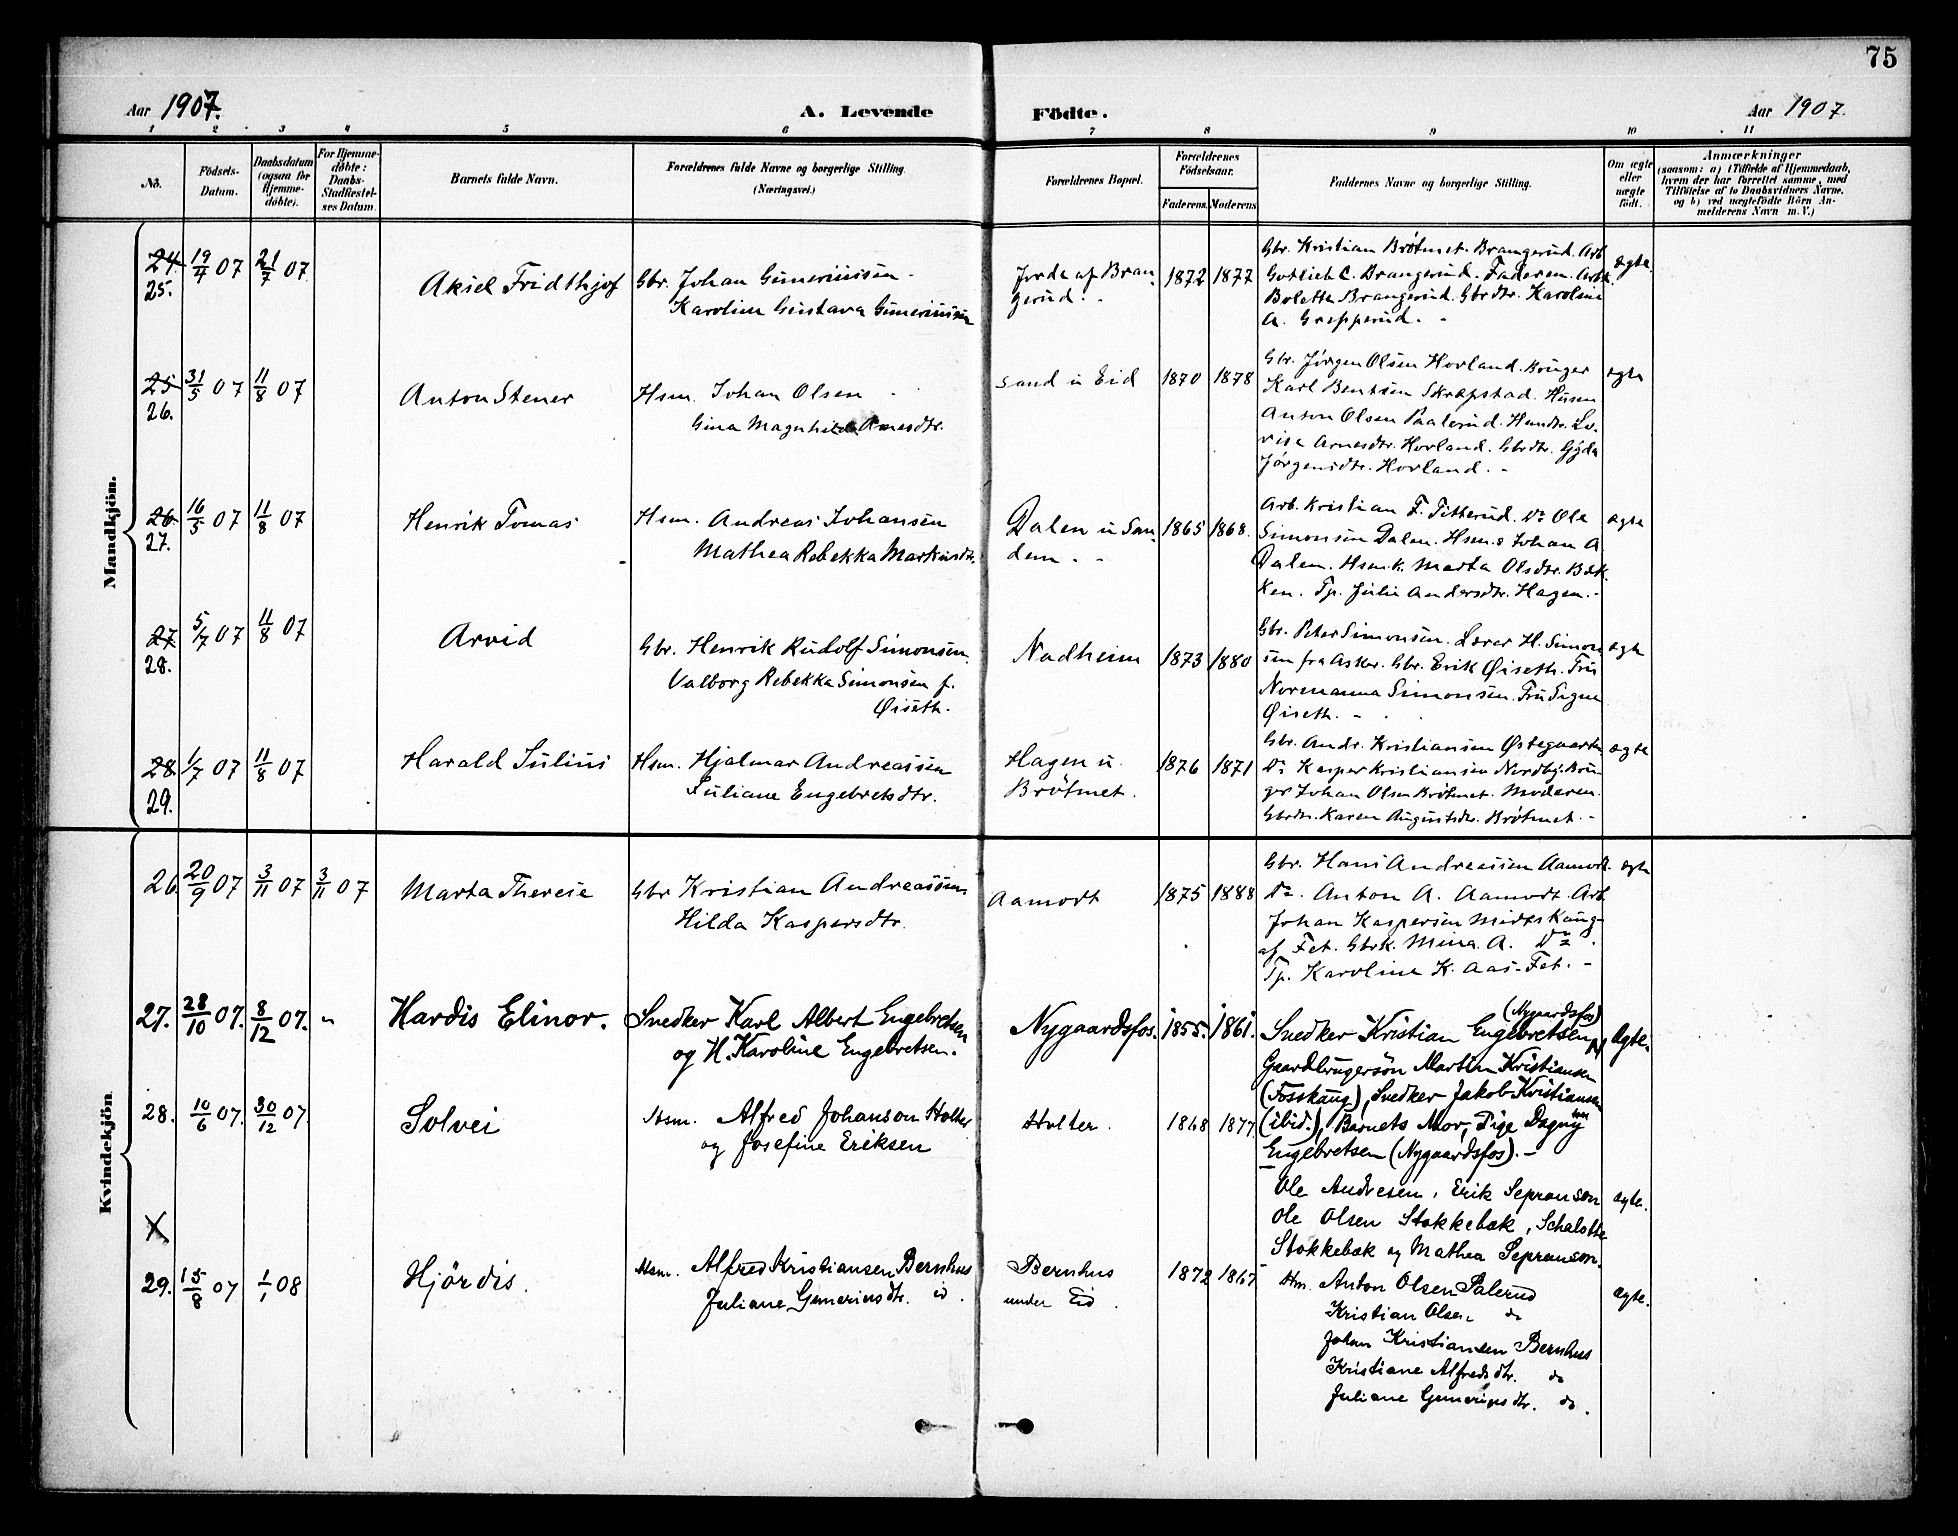 75
Aar 1907.
A. Levende
Födte.
Aar 1907.
1 2 3 4 5 6 7 8 9 10 11
No.
Födsels-
Datum.
Daabsdatum
(ogsaa for
Hjemme-
döbte).
For Hjemme-
döbte:
Daabs-
Stadfæstel-
ses Datum.
Barnets fulde Navn.
Forældrenes fulde Navne og borgerlige Stilling.
(Næringsvei.)
Forældrenes Bopæl.
Forældrenes
Födselsaar.
Faderens.
Moderens
Faddernes Navne og borgerlige Stilling.
Om ægte
eller
uægte
födt.
Anmærkninger
(saasom: a) i Tilfælde af Hjemmedaab,
hvem der har forrettet samme, med
Tilföielse af to Daabsvidners Navne.
og b) ved uægtefödte Börn An-
melderens Navn m. V.)
Mandkjön.
24.
25.
19/4 07
21/7 07
Aksel Fridthjof
Gbr. Johan Guneriussen
Karoline Gustava Guneriussen
Jorde af Bran-
gerud.
1872
1877
Gbr. Kristian Brøtmet. Brangerud. Arb.
Gotlieb C. Brangerud. Faderen. Arbk.
Bolette Brangerud. Gbrdtr. Karoline
A. Grepperud.
ægte
25
26.
31/5 07
11/8 07
Anton Stener
Hsm. Johan Olsen
Gina Magnhild Arnesdtr.
Sand u Eid
1870
1878
Gbr. Jørgen Olsen Hovland. Bruger
Karl Bentsen Skrepstad. Husm
Anton Olsen Paalerud. Husdtr. Lo-
vise Arnesdtr. Hovland. Gbrdtr. Gyda
Jørgensdtr. Hovland.
ægte
26
27.
16/5 07
11/8 07
Henrik Tomas
Hsm. Andreas Johansen
Mathea Rebekka Markusdtr.
Dalen u San-
dem.
1865
1868.
Arb. Kristian F. Titterud. Do Ole
Simonsen Dalen. Hsm.s Johan A.
Dalen. Hsm.k. Marta Olsdtr. Bæk-
ken. Tp. Julie Andersdtr. Hagen.
ægte
27
28.
5/7 07
11/8 07
Arvid
Gbr. Henrik Rudolf Simonsen
Valborg Rebekka Simonsen f.
Øiseth.
Nadheim
1873
1880
Gbr. Peter Simonsen. Lærer H. Simon-
sen fra Asker. Gbr. Erik Øiseth. Fru
Normanna Simonsen. Fru Signe
Øiseth.
ægte
28
29.
1/7 07
11/8 07
Harald Julius
Hsm. Hjalmar Andreassen
Juliane Engebretsdtr.
Hagen u.
Brøtmet.
1876
1871
Gbr. Andr. Kristiansen Østegaarden
Do Kasper Kristiansen Nordby. Bru-
ger Johan Olsen Brøtmet. Moderen.
Gbrdtr. Karen Augustsdtr. Brøtmet.
ægte
Kvindekjön.
26.
20/9 07
3/11 07
3/11 07
Marta Therese
Gbr Kristian Andreassen
Hilda Kaspersdtr.
Aamodt
1875
1888
Gbr. Hans Andreassen Aamodt.
Do. Anton A. Aamodt. Arb.
Johan Kaspersen Midtskaug
af Fet. Gbrk. Mina A. Do.
Tp. Karoline K. Aas-Fet.
ægte
27.
28/10 07.
8/12 07.
"
Hardis Elinor.
Snedker Karl Albert Engebretsen
og H. Karoline Engebretsen.
Nygaardsfos.
1855.
1861.
(Nygaardsfos)
Snedker Kristian Engebretsen,
Gaardbrugersön Martin Kristiansen
(Fosskaug), Snedker Jakob Kristiansen
(ibid.), Barnets Mor, Pige Dagny
Engebretsen (Nygaardsfos).
Ægte.
28.
10/6 07.
30/12 07.
Solvei
Hsm. Alfred Johanson Holter
og Josefine Eriksen
Holter.
1868
1877.
Ole Andresen, Erik Sepranson
Ole Olsen Stokkebæk, Schalotte
Stokkebæk og Mathea Sepranson.
ægte.
X
29.
15/8 07
1/1 08
Hjördis.
Hsm. Alfred Kristiansen Bernhus
Juliane Generiusdtr. id.
Bernhus
under Eid.
1872
1867
Hm. Anton Olsen Palerud
Kristian Olsen do
Johan Kristiansen Bernhus
Kristiane Alfredsdtr. do
Juliane Generiusdtr. do.
ægte.